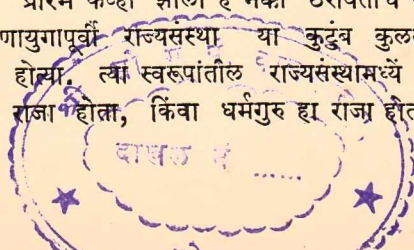 प्रारंभ केव्हां झाला हे नक्की
णायुगापूर्वी राज्यसंस्था या कुटुंब कुल
होत्या. त्या स्वरूपांतील राज्यसंस्थामध्यें
राजा होता, किंवा धर्मगुरु हा राजा होत
दाखल